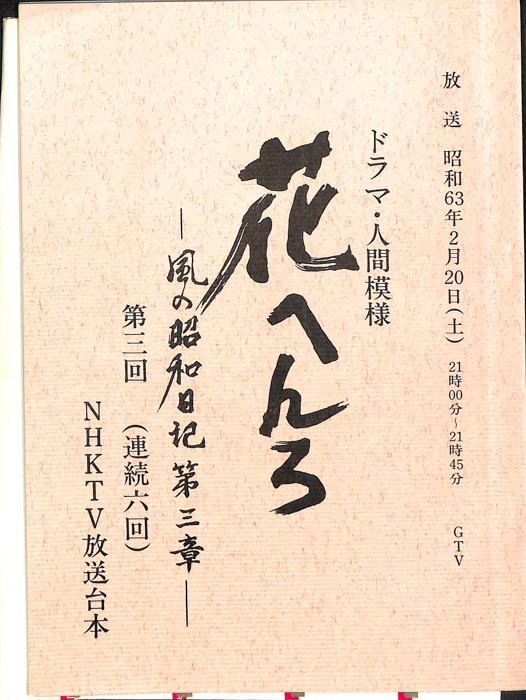 放送 昭和63年2月20日(土) 21時00分~21時45分 GTV
ドラマ・人間模様
花へんろ
―風の昭和日記 第三章―
第三回 (連続六回)
NHKTV放送台本